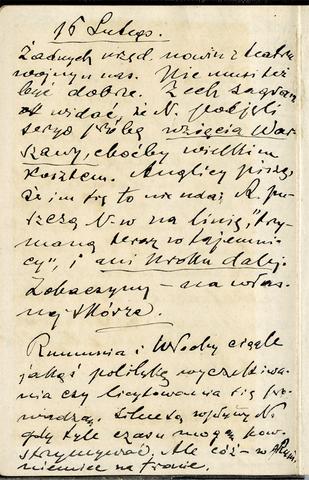 16 Lutego.
Żadnych urzęd. nowin z teatru
wojny u nas. Nie musi też
być dobrze. Z ech zagran.
widać, że N. podjęli
seryo próbę wzięcia War-
szawy, choćby wielkim
kosztem. Anglicy piszą,
że im się to nie uda, R. pu-
szczą N-w na linię, „trzy-
maną teraz w tajemni-
cy", i ani kroku dalej.
Zobaczymy – na włas-
nej skórze.
Rumunia i Włochy ciągle
jakąś politykę wyczekiwa-
nia czy licytowania się pro-
wadzą. wpływy N.
gdy tyle czasu mogą pow-
strzymywać. Ale cóż – w Rum.
niemiec na tronie.